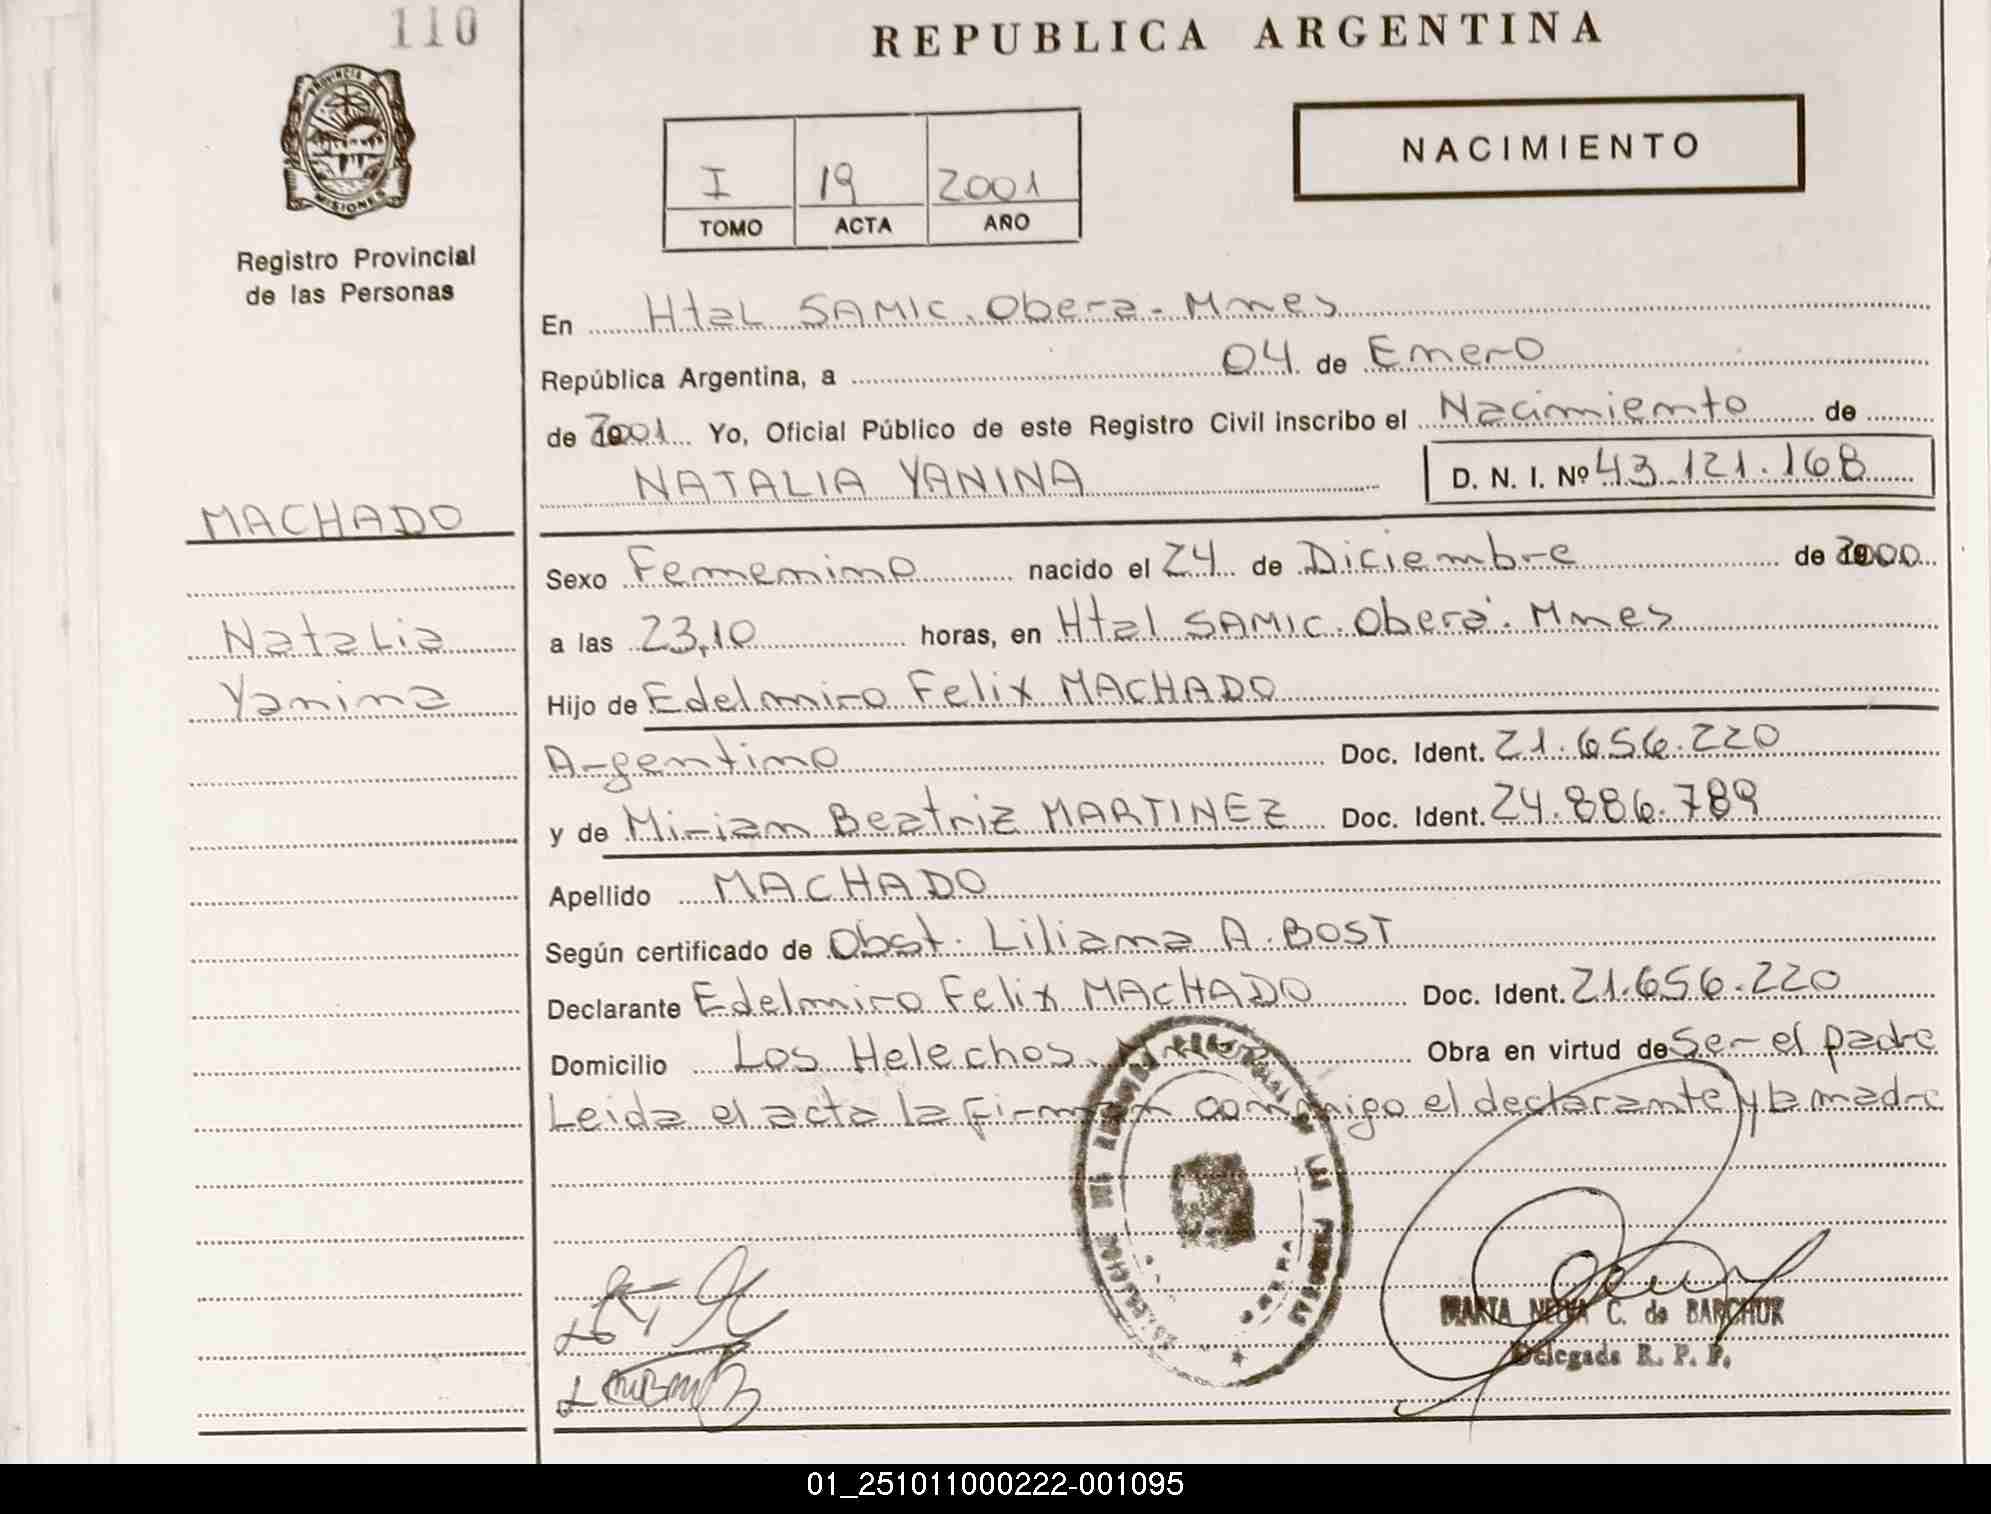 110
REPUBLICA ARGENTINA
PROVINCIA DE
MISIONES
Registro Provincial
de las Personas
I 19 2001
TOMO ACTA AÑO
NACIMIENTO
En Htal SAMIC. Oberá - Mnes
República Argentina, a 04 de Enero
de 2001 Yo, Oficial Público de este Registro Civil inscribo el Nacimiento de
NATALIA YANINA D. N. I. Nº 43.121.168
MACHADO
Natalia
Yanina
Sexo Femenino nacido el 24 de Diciembre de 2000
a las 23,10 horas, en Htal SAMIC. Oberá. Mnes
Hijo de Edelmiro Felix MACHADO
Argentino Doc. Ident. 21.656.220
y de Miriam Beatriz MARTINEZ Doc. Ident. 24.886.789
Apellido MACHADO
Según certificado de Obst. Liliana A. BOST
Declarante Edelmiro Felix MACHADO Doc. Ident. 21.656.220
Domicilio Los Helechos. Obra en virtud de Ser el padre
Leida el acta la firman conmigo el declarante y la madre
MARTA C. de BARCHUK
Delegada R. P. P.
01_251011000222-001095